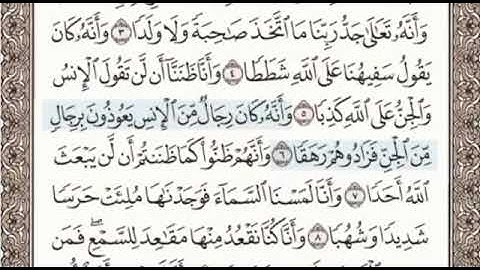 وَأَنَّهُۥ تَعَـٰلَىٰ جَدُّ رَبِّنَا مَا ٱتَّخَذَ صَـٰحِبَةً وَلَا وَلَدًا ٣ وَأَنَّهُۥ كَانَ
يَقُولُ سَفِيهُنَا عَلَى ٱللَّهِ شَطَطًا ٤ وَأَنَّا ظَنَنَّآ أَن لَّن تَقُولَ ٱلْإِنسُ
وَٱلْجِنُّ عَلَى ٱللَّهِ كَذِبًا ٥ وَأَنَّهُۥ كَانَ رِجَالٌ مِّنَ ٱلْإِنسِ يَعُوذُونَ بِرِجَالٍ
مِّنَ ٱلْجِنِّ فَزَادُوهُمْ رَهَقًا ٦ وَأَنَّهُمْ ظَنُّوا۟ كَمَا ظَنَنتُمْ أَن لَّن يَبْعَثَ
ٱللَّهُ أَحَدًا ٧ وَأَنَّا لَمَسْنَا ٱلسَّمَآءَ فَوَجَدْنَـٰهَا مُلِئَتْ حَرَسًا
شَدِيدًا وَشُهُبًا ٨ وَأَنَّا كُنَّا نَقْعُدُ مِنْهَا مَقَـٰعِدَ لِلسَّمْعِ ۖ فَمَن